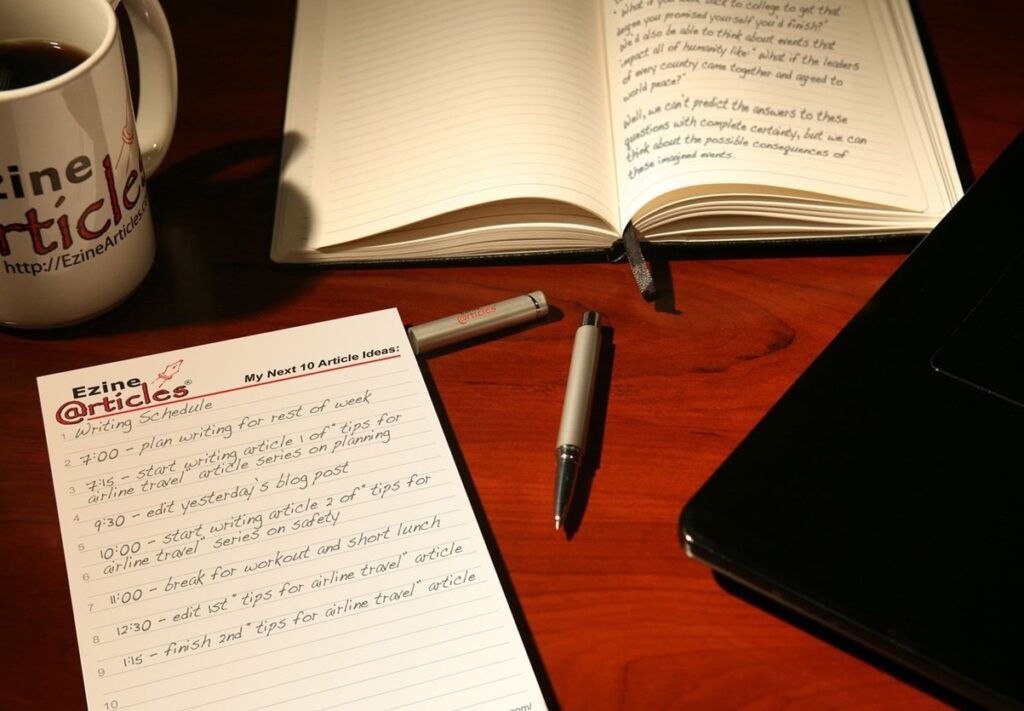 zine
rticles
http://EzineArticles.c
" What if you went back to college to get that
degree you promised yourself you'd finish?"
We'd also be able to think about events that
impact all of humanity like: " What if the leaders
of every country came together and agreed to
world peace?"
Well, we can't predict the answers to these
questions with complete certainty, but we can
think about the possible consequences of
these imagined events.
@rticles
Ezine
@rticles®
My Next 10 Article Ideas:
1 Writing Schedule
2 7:00 - plan writing for rest of week
3 7:15 - start writing article 1 of " tips for
airline travel" article series on planning
4 9:30 - edit yesterday's blog post
5 10:00 - start writing article 2 of " tips for
6 airline travel" series on safety
7 11:00 - break for workout and short lunch
8 12:30 - edit 1st " tips for airline travel" article
9 1:15 - finish 2nd " tips for airline travel" article
10
om/